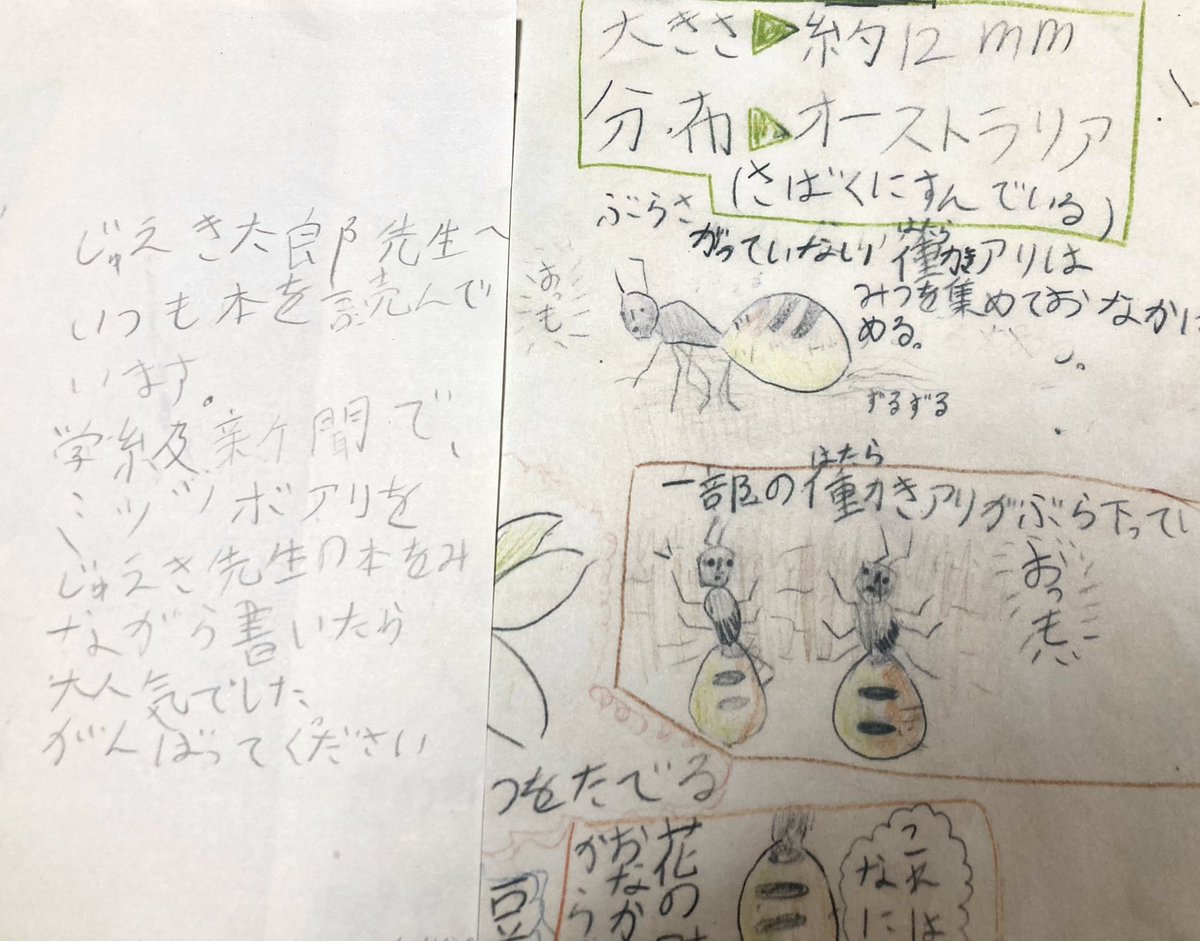 じゅえき太郎先生へ
いつも本を読んで
います。
学級新聞で、
ミツツボアリを
じゅえき先生の本をみ
ながら書いたら
大人気でした
がんばってください
大きさ▶約12mm
分布▶オーストラリア
(さばくにすんでいる)
ぶらさ
がっていない働きアリは
はたら
みつを集めておなかに
める。
おっも
ずるずる
はたら
一部の働きアリがぶら下ってい
おっも
つをたでる
花の
おなか
から
これは
なに
豆